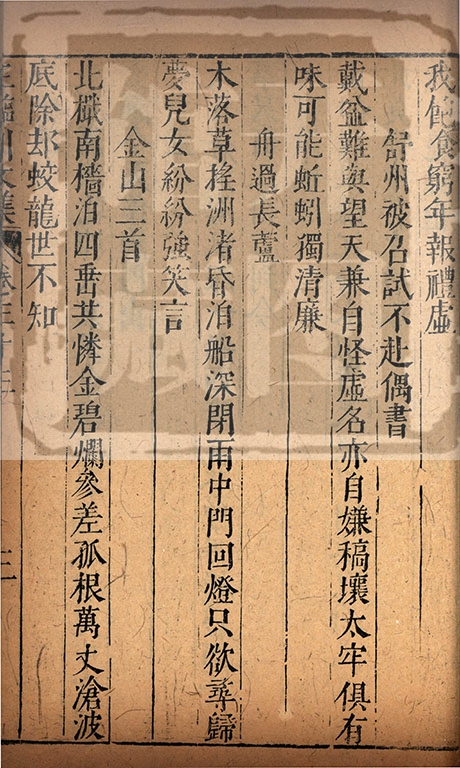 我飽食窮年報禮虛
舒州被召試不赴偶書
戴盆難與望天兼自怪虛名亦自嫌稿壤太牢俱有
味可能蚯蚓獨清廉
舟過長蘆
木落草摇洲渚昏泊船深閉雨中門回燈只欲尋歸
夢兒女紛紛強笑言
金山三首
北檥南檣泊四垂共憐金碧爛參差孤根萬丈滄波
底除却蛟龍世不知
三